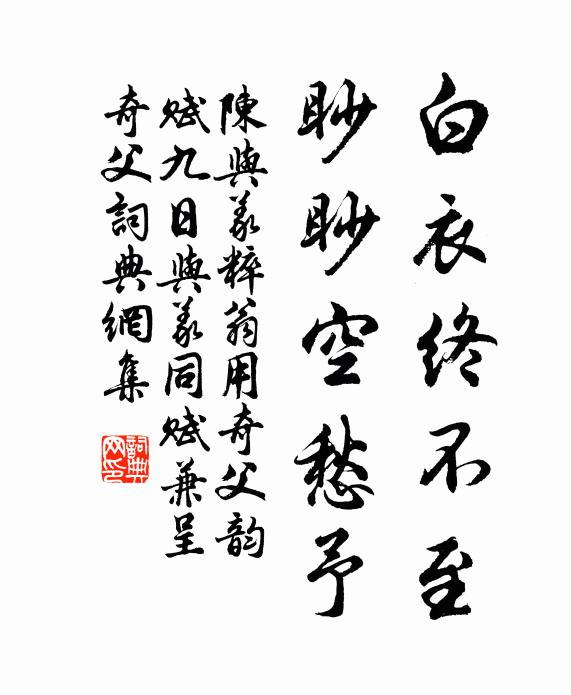 白衣終不至
眇眇空愁予
陳與義粹翁用奇父韵
賦九日與義同賦兼呈
奇父詞典網集
詞典網印